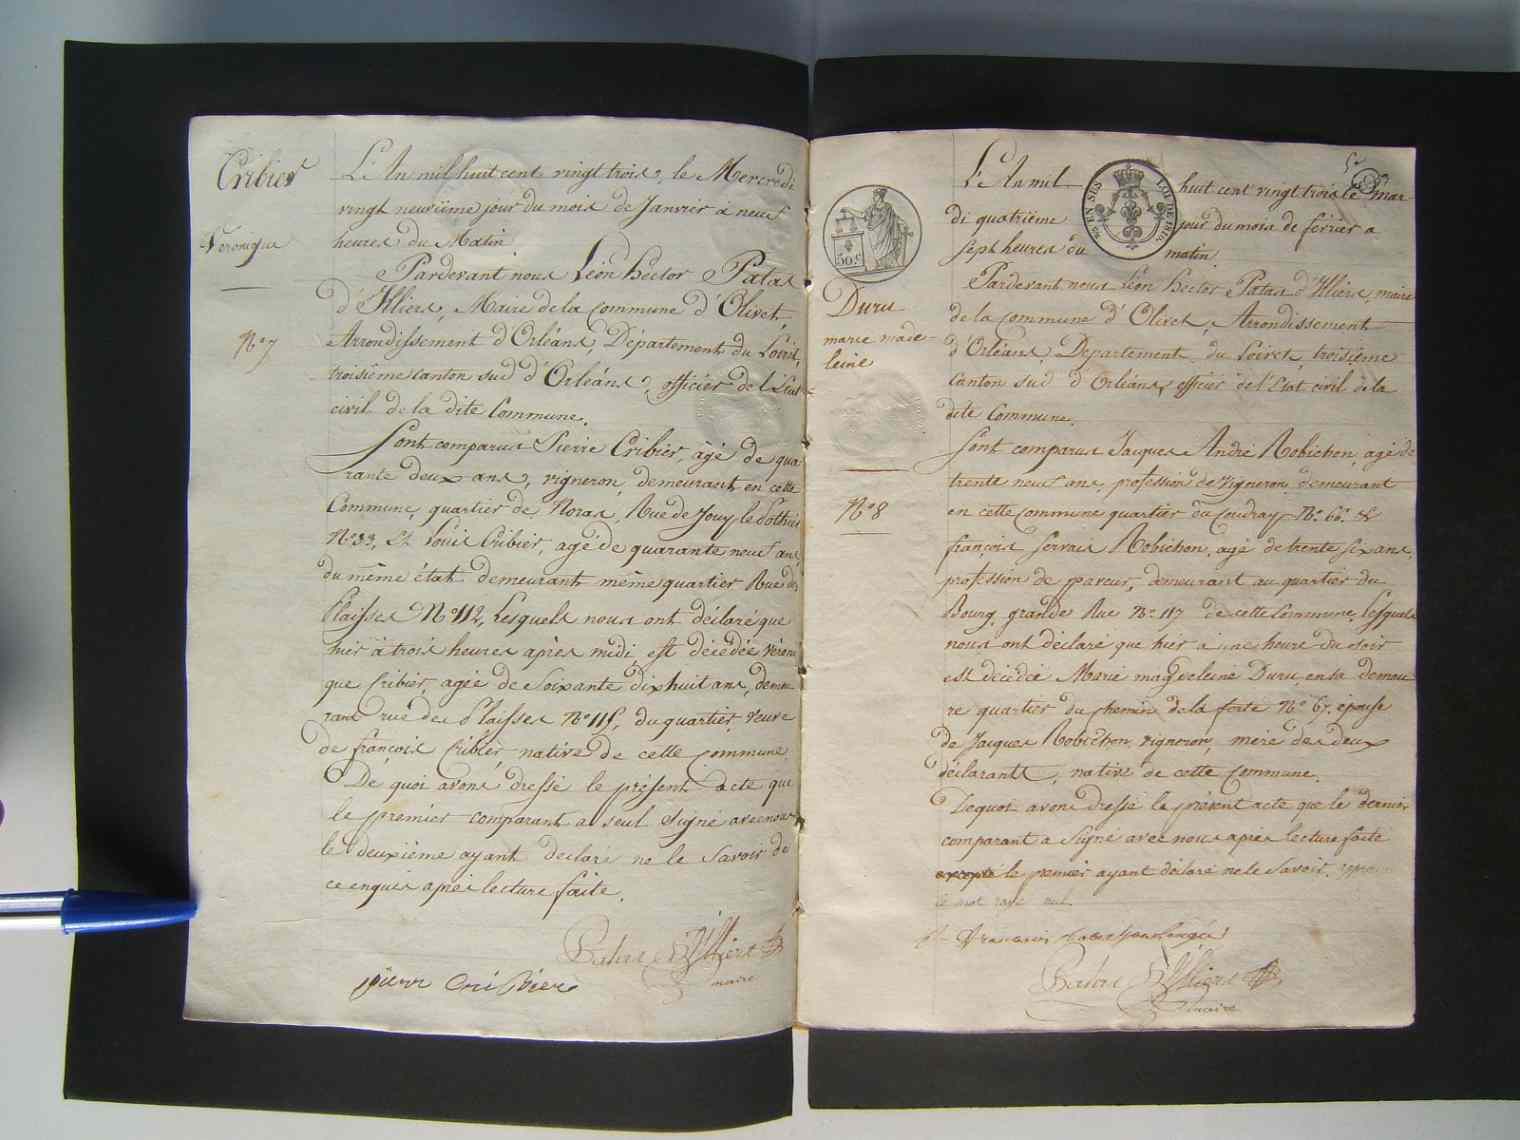 Cribier
Véronique
N.º 7
L'An mil huit cent vingt trois, le Mercredi
vingt neuvième jour du mois de Janvier à neuf
heures du Matin
Pardevant nous Léon hector Patas
D'Illiers, Maire de la Commune d'Olivet,
Arrondissement d'Orléans, Département du Loiret,
troisième Canton sud d'Orléans, officier de l'Etat
civil de la dite Commune.
Sont comparus Pierre Cribier, âgé de qua
rante deux ans, vigneron, demeurant en cette
Commune, quartier de Noras, Rue de Jouy le
N.º 33, Et Louis Cribier, agé de quarante neuf ans
du même état demeurant même quartier Rue des
Plaisses N.º 112, Lesquels nous ont déclaré que
hier à trois heures après midi est décédée véroni
que Cribier, agée de Soixante dix huit ans, demeu
rant rue des Plaisses N.º 115, du quartier, veuve
de françois Cribier native de cette commune
De quoi avons dressé le présent acte que
le premier comparant a seul Signé avec nous
le deuxième ayant déclaré ne le Savoir de
ce enquis après lecture faite.
Patas D'Illiers
maire
pierre Cribier
50.c
Duru
marie made-
leine
N.º 8
L'An mil huit cent vingt trois le mar
di quatrième jour du mois de février a
sept heures du matin.
Pardevant nous Léon hector Patas d'Illiers, maire
de la Commune d'Olivet, Arrondissement
d'Orléans, Département du Loiret, troisième
Canton sud d'Orléans, officier de l'Etat civil de la
dite Commune.
Sont comparus Jacques André Robichon, agé de
trente neuf ans, profession de vigneron, demeurant
en cette Commune quartier du Coudray N.º 60. &
françois Servais Robichon, agé de trente six ans,
profession de paveur, demeurant au quartier du
Bourg grande Rue N.º 117 de cette Commune, lesquels
nous ont déclaré que hier à une heure du soir
est décédée Marie magdeleine Duru, en sa demeu
re quartier du chemin de la forte N.º 67. épouse
de Jacques Robichon, vigneron, mère des deux
déclarants, native de cette Commune.
Dequoi avons dressé le présent acte que le dernier
comparant a Signé avec nous après lecture faite
excepté le premier ayant déclaré ne le Savoir.
le mot rayé nul.
Patas D'Illiers
maire